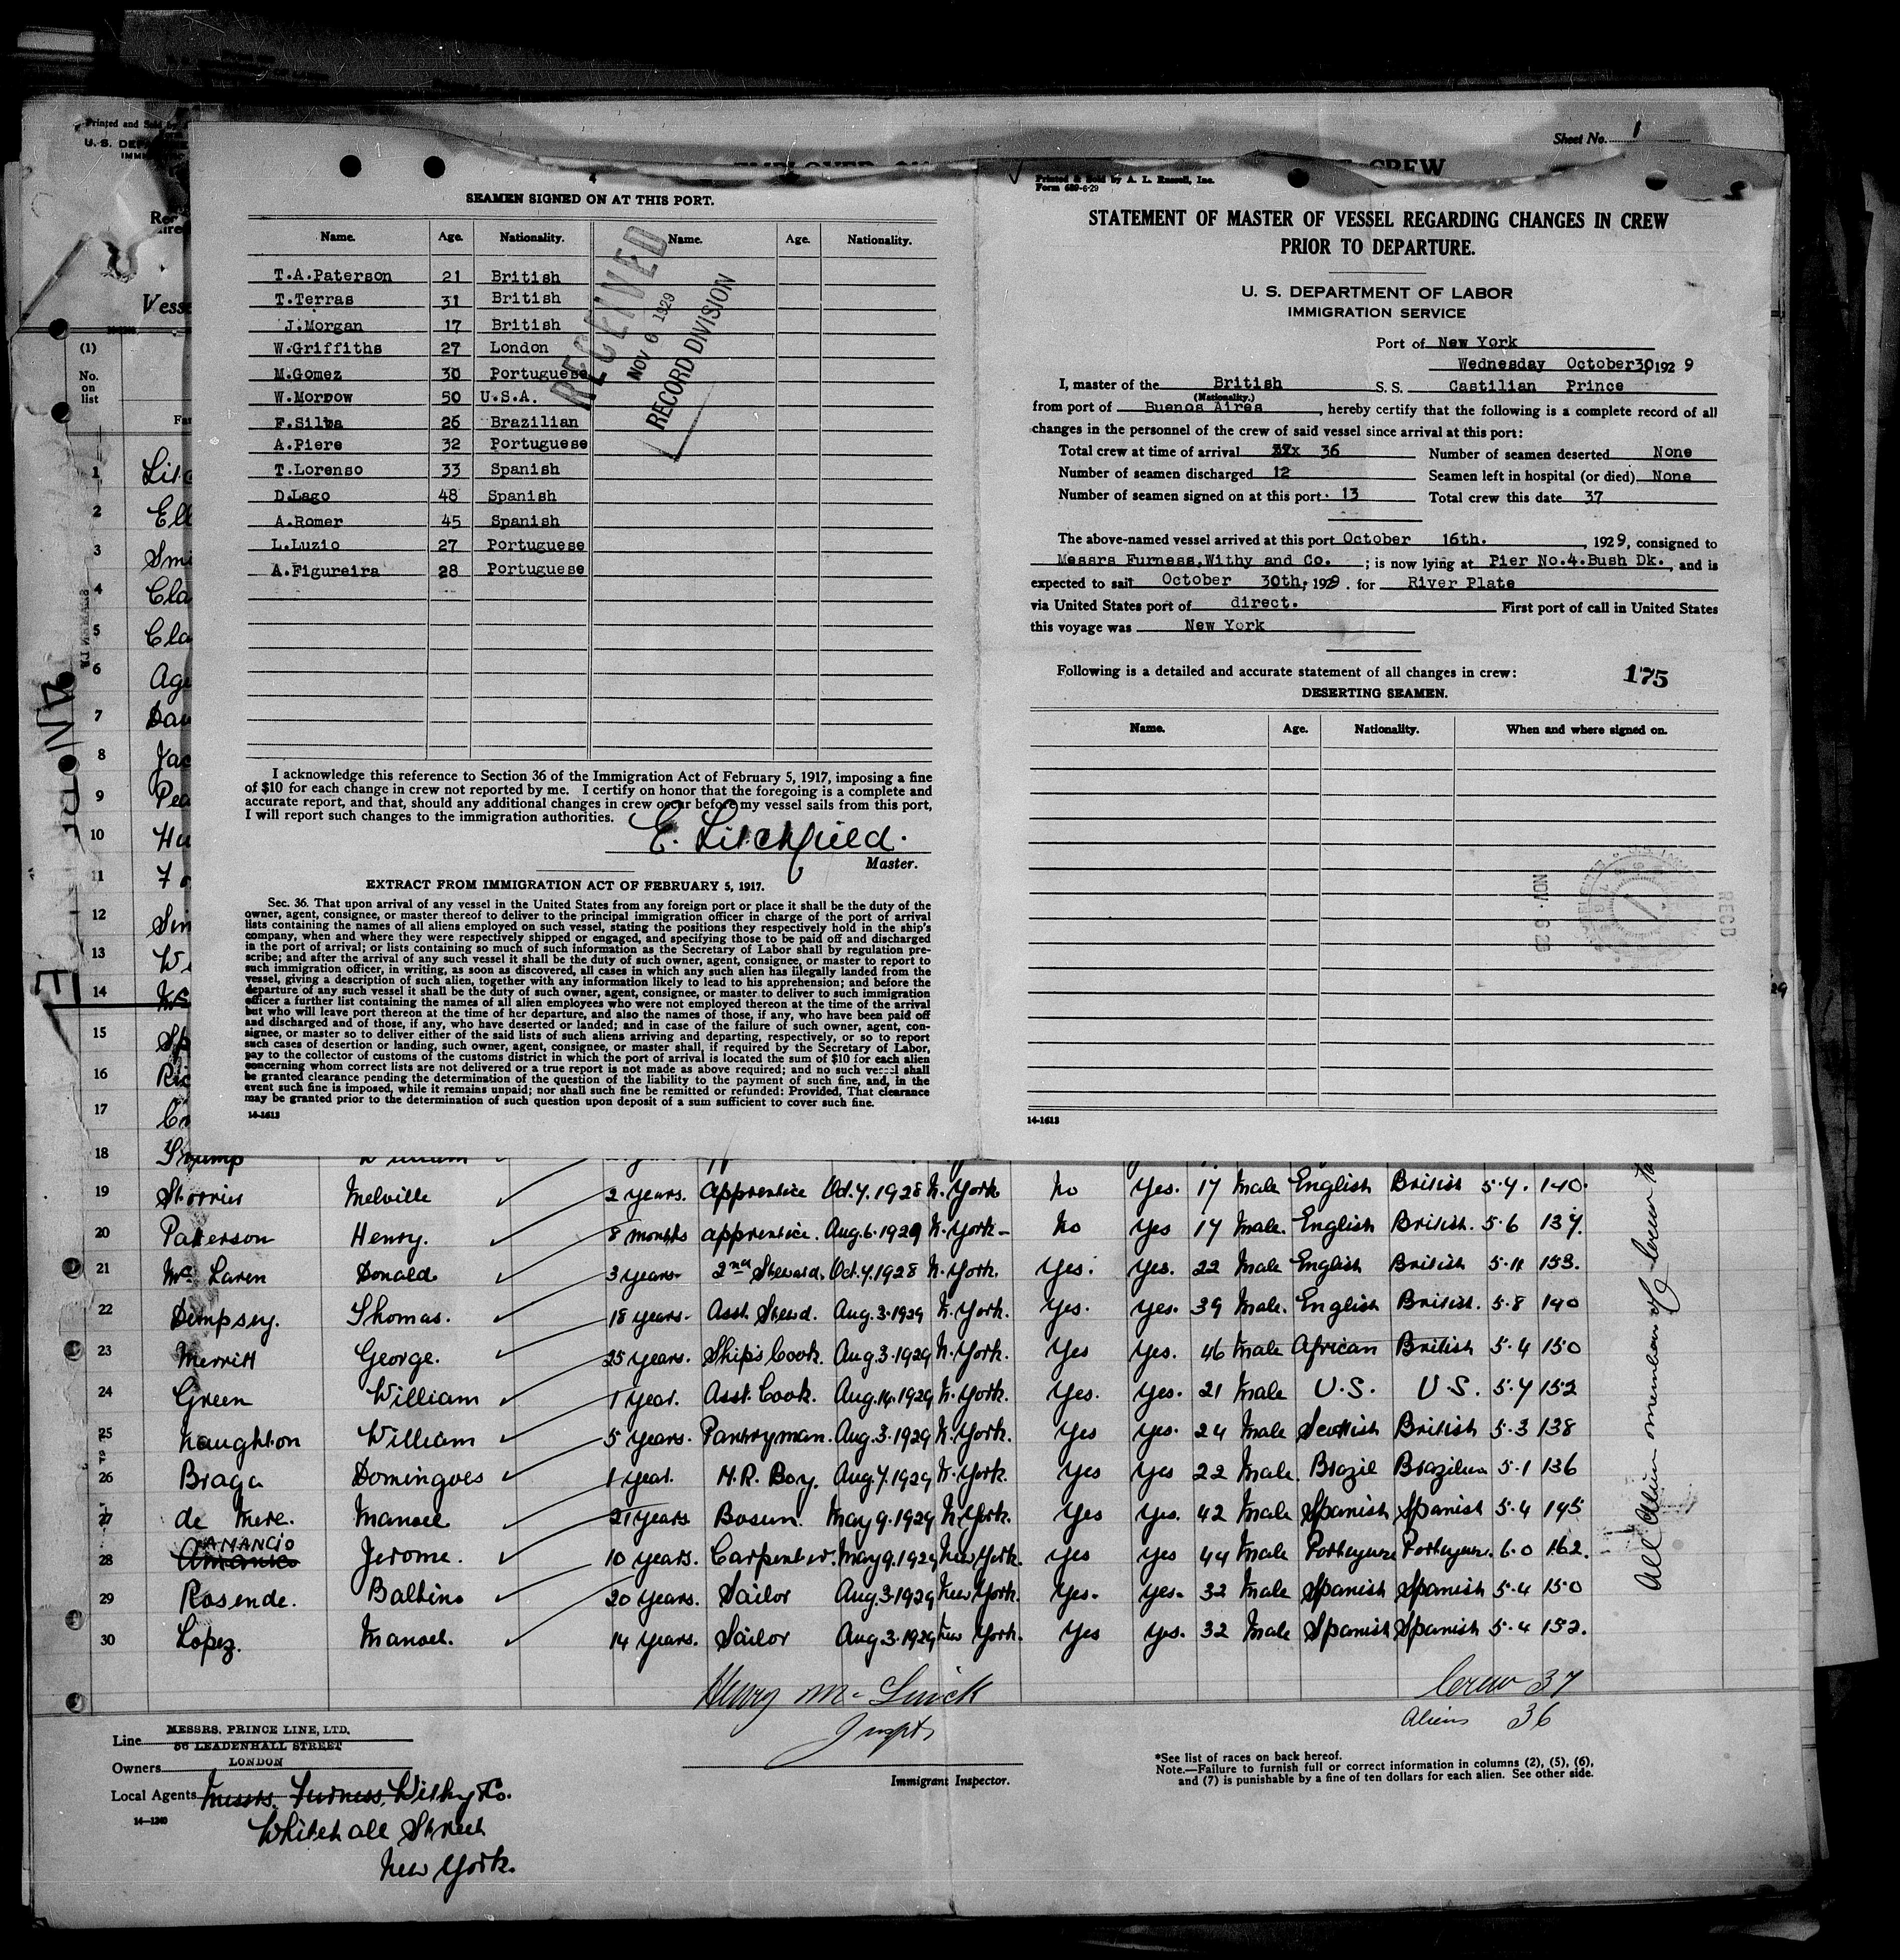 Printed and Sold by
U. S. DEP
IMM
Sheet No. 1
CREW
4
SEAMEN SIGNED ON AT THIS PORT.
Name. Age. Nationality. Name. Age. Nationality.
T.A.Paterson 21 British
T.Terras 31 British
J.Morgan 17 British
W.Griffiths 27 London
M.Gomez 30 Portuguese
W.Morrow 50 U.S.A.
F.Silva 26 Brazilian
A.Piere 32 Portuguese
T.Lorenso 33 Spanish
D.Lago 48 Spanish
A.Romer 45 Spanish
L.Luzio 27 Portuguese
A.Figureira 28 Portuguese
RECEIVED
NOV 6 1929
RECORD DIVISION
I acknowledge this reference to Section 36 of the Immigration Act of February 5, 1917, imposing a fine
of $10 for each change in crew not reported by me. I certify on honor that the foregoing is a complete and
accurate report, and that, should any additional changes in crew occur before my vessel sails from this port,
I will report such changes to the immigration authorities.
E. Litchfield.
Master.
EXTRACT FROM IMMIGRATION ACT OF FEBRUARY 5, 1917.
Sec. 36. That upon arrival of any vessel in the United States from any foreign port or place it shall be the duty of the
owner, agent, consignee, or master thereof to deliver to the principal immigration officer in charge of the port of arrival
lists containing the names of all aliens employed on such vessel, stating the positions they respectively hold in the ship's
company, when and where they were respectively shipped or engaged, and specifying those to be paid off and discharged
in the port of arrival; or lists containing so much of such information as the Secretary of Labor shall by regulation pre-
scribe; and after the arrival of any such vessel it shall be the duty of such owner, agent, consignee, or master to report to
such immigration officer, in writing, as soon as discovered, all cases in which any such alien has illegally landed from the
vessel, giving a description of such alien, together with any information likely to lead to his apprehension; and before the
departure of any such vessel it shall be the duty of such owner, agent, consignee, or master to deliver to such immigration
officer a further list containing the names of all alien employees who were not employed thereon at the time of the arrival
but who will leave port thereon at the time of her departure, and also the names of those, if any, who have been paid off
and discharged and of those, if any, who have deserted or landed; and in case of the failure of such owner, agent, con-
signee, or master so to deliver either of the said lists of such aliens arriving and departing, respectively, or so to report
such cases of desertion or landing, such owner, agent, consignee, or master shall, if required by the Secretary of Labor,
pay to the collector of customs of the customs district in which the port of arrival is located the sum of $10 for each alien
concerning whom correct lists are not delivered or a true report is not made as above required; and no such vessel shall
be granted clearance pending the determination of the question of the liability to the payment of such fine, and, in the
event such fine is imposed, while it remains unpaid; nor shall such fine be remitted or refunded: Provided, That clearance
may be granted prior to the determination of such question upon deposit of a sum sufficient to cover such fine.
14-1613
Printed & Sold by A. L. Russell, Inc.
Form 689-6-29
STATEMENT OF MASTER OF VESSEL REGARDING CHANGES IN CREW
PRIOR TO DEPARTURE.
U. S. DEPARTMENT OF LABOR
IMMIGRATION SERVICE
Port of New York
Wednesday October 30 1929
I, master of the British S. S. Castilian Prince
(Nationality.)
from port of Buenos Aires, hereby certify that the following is a complete record of all
changes in the personnel of the crew of said vessel since arrival at this port:
Total crew at time of arrival 36 Number of seamen deserted None
Number of seamen discharged 12 Seamen left in hospital (or died) None
Number of seamen signed on at this port 13 Total crew this date 37
The above-named vessel arrived at this port October 16th. , 1929, consigned to
Messrs Furness,Withy and Co. ; is now lying at Pier No.4.Bush Dk. , and is
expected to sail October 30th, 1929. for River Plate
via United States port of direct. First port of call in United States
this voyage was New York
Following is a detailed and accurate statement of all changes in crew: 175
DESERTING SEAMEN.
Name. Age. Nationality. When and where signed on.
NOV 6 29
REC'D
14-1613
Vesse
(1)
No.
on
list
Fa
1 Litc
2 Ell
3 Smi
4 Cla
5 Cla
6 Age
7 Dav
8 Jac
9 Pea
10 Hu
11 Fo
12 Sim
13 Wi
14 Mc
15 Sp
16 Ric
17 Co
18 William
19 Storrier Melville 2 years. Apprentice Oct.7.1928 N.York No Yes. 17 Male English British 5.7. 140.
20 Paterson Henry. 8 months apprentice. Aug.6.1929 N.York- No Yes 17 Male. English British. 5.6 137.
21 Mc Laren Donald 3 years. 2nd Steward. Oct.7.1928 N.York. Yes. Yes. 22 Male English British 5.11 153.
22 Dempsey. Thomas. 18 years. Asst. Stewd. Aug.3.1929 N.York. Yes. Yes. 39 Male. English British. 5.8 140
23 Merritt George. 25 years. Ship's Cook. Aug.3.1929 N.York. Yes Yes. 46 Male African British 5.4 150
24 Green William 1 year. Asst. Cook. Aug.14.1929 N.York. Yes. Yes. 21 Male U.S. U.S. 5.7 152
25 Naughton William 5 years. Pantryman. Aug.3.1929 N.York. Yes Yes. 24 Male Scottish British 5.3 138
26 Braga Domingoes 1 year. M.R. Boy. Aug.7.1929 N.York. Yes Yes 22 Male. Brazil Brazilian 5.1 136
27 de Mere. Manoel 21 years Bosun. May 9.1929 N.York. Yes Yes. 42 Male Spanish Spanish 5.4 145
AMANCIO
28 Amancio Jerome. 10 years. Carpenter. May 9.1929 New York. Yes Yes 44 Male Portuguese Portuguese. 6.0 162.
29 Rosende. Balbino 20 years. Sailor Aug.3.1929 New York. Yes. Yes. 32 Male Spanish Spanish 5.4 150
30 Lopez. Manoel. 14 years. Sailor Aug.3.1929 New York. Yes Yes. 32 Male Spanish Spanish 5.4 152.
All Alien members of Crew
Henry Mc
Inspt.
Immigrant Inspector.
Crew 37
Aliens 36
Line MESSRS. PRINCE LINE, LTD.
56 LEADENHALL STREET
Owners LONDON
Local Agents Messrs. Furness, Withy & Co.
Whitehall Street
New York.
14-1240
*See list of races on back hereof.
Note.—Failure to furnish full or correct information in columns (2), (5), (6),
and (7) is punishable by a fine of ten dollars for each alien. See other side.